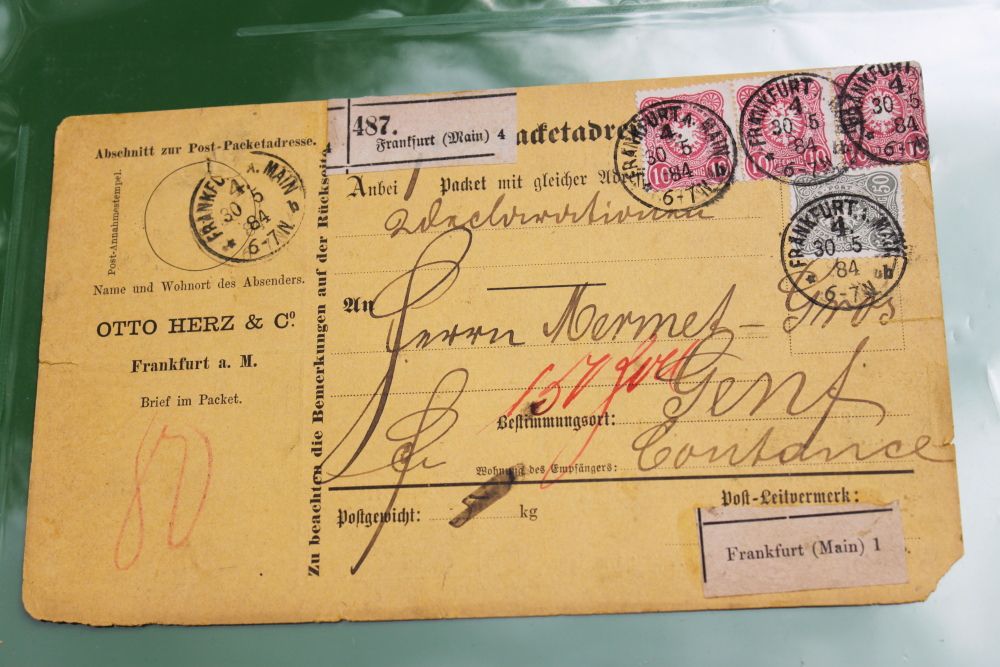 Abschnitt zur Post-Packetadresse.
Post-Annahmestempel.
FRANKFURT A. MAIN
4.
30 5
84
6-7N
* b
Name und Wohnort des Absenders.
OTTO HERZ & Cº
Frankfurt a. M.
Brief im Packet.
80
Zu beachten die Bemerkungen auf der Rückseite
487.
Frankfurt (Main) 4
4
acketadre
Anbei 1 Packet mit gleicher Adr
Declarationen
An
Herrn Mermet-Gros
Genf
Bestimmungsort:
Wohnung des Empfängers: Coutance
Postgewicht: kg
Post-Leitvermerk:
Frankfurt (Main) 1
10
FRANKFURT A. MAIN
4.
30 5
84
6-7N
* b
10 PFENNIG
FRANKFURT
4.
30 5
84
6-7N
*
FRANKFURT
4.
30 5
84
6-7N
*
POST
50
FRANKFURT A. MAIN
4.
30 5
84
6-7N
* b